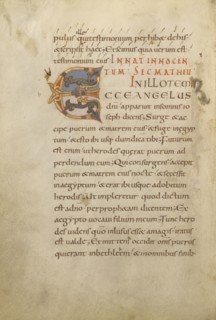 pulus qui testimonium perhibet de his
& scripsit haec & scimus quia uerum est
testimonium eius IN NAT INNOCEN
TUM SEC MATHEU
IN ILLO TEM
ECCE ANGELUS
dni apparuit in somnis io
seph dicens Surge & ac
cipe puerum & matrem eius & fuge in egyp
tum & esto ibi usq dum dica tibi Futurum
est enim ut herodes querat puerum ad
perdendum eum Qui consurgens accepit
puerum & matrem eius nocte & secessit
in aegyptum & erat ibi usque ad obitum
herodis ut impleretur quod dictum
est a dno per prophetam dicentem Ex
aegypto uocaui filium meum Tunc hero
des uidens quo inlusus esset a magis iratus
est ualde & mittens occidit omnes pueros
qui erant in bethleem & in omnibus finib